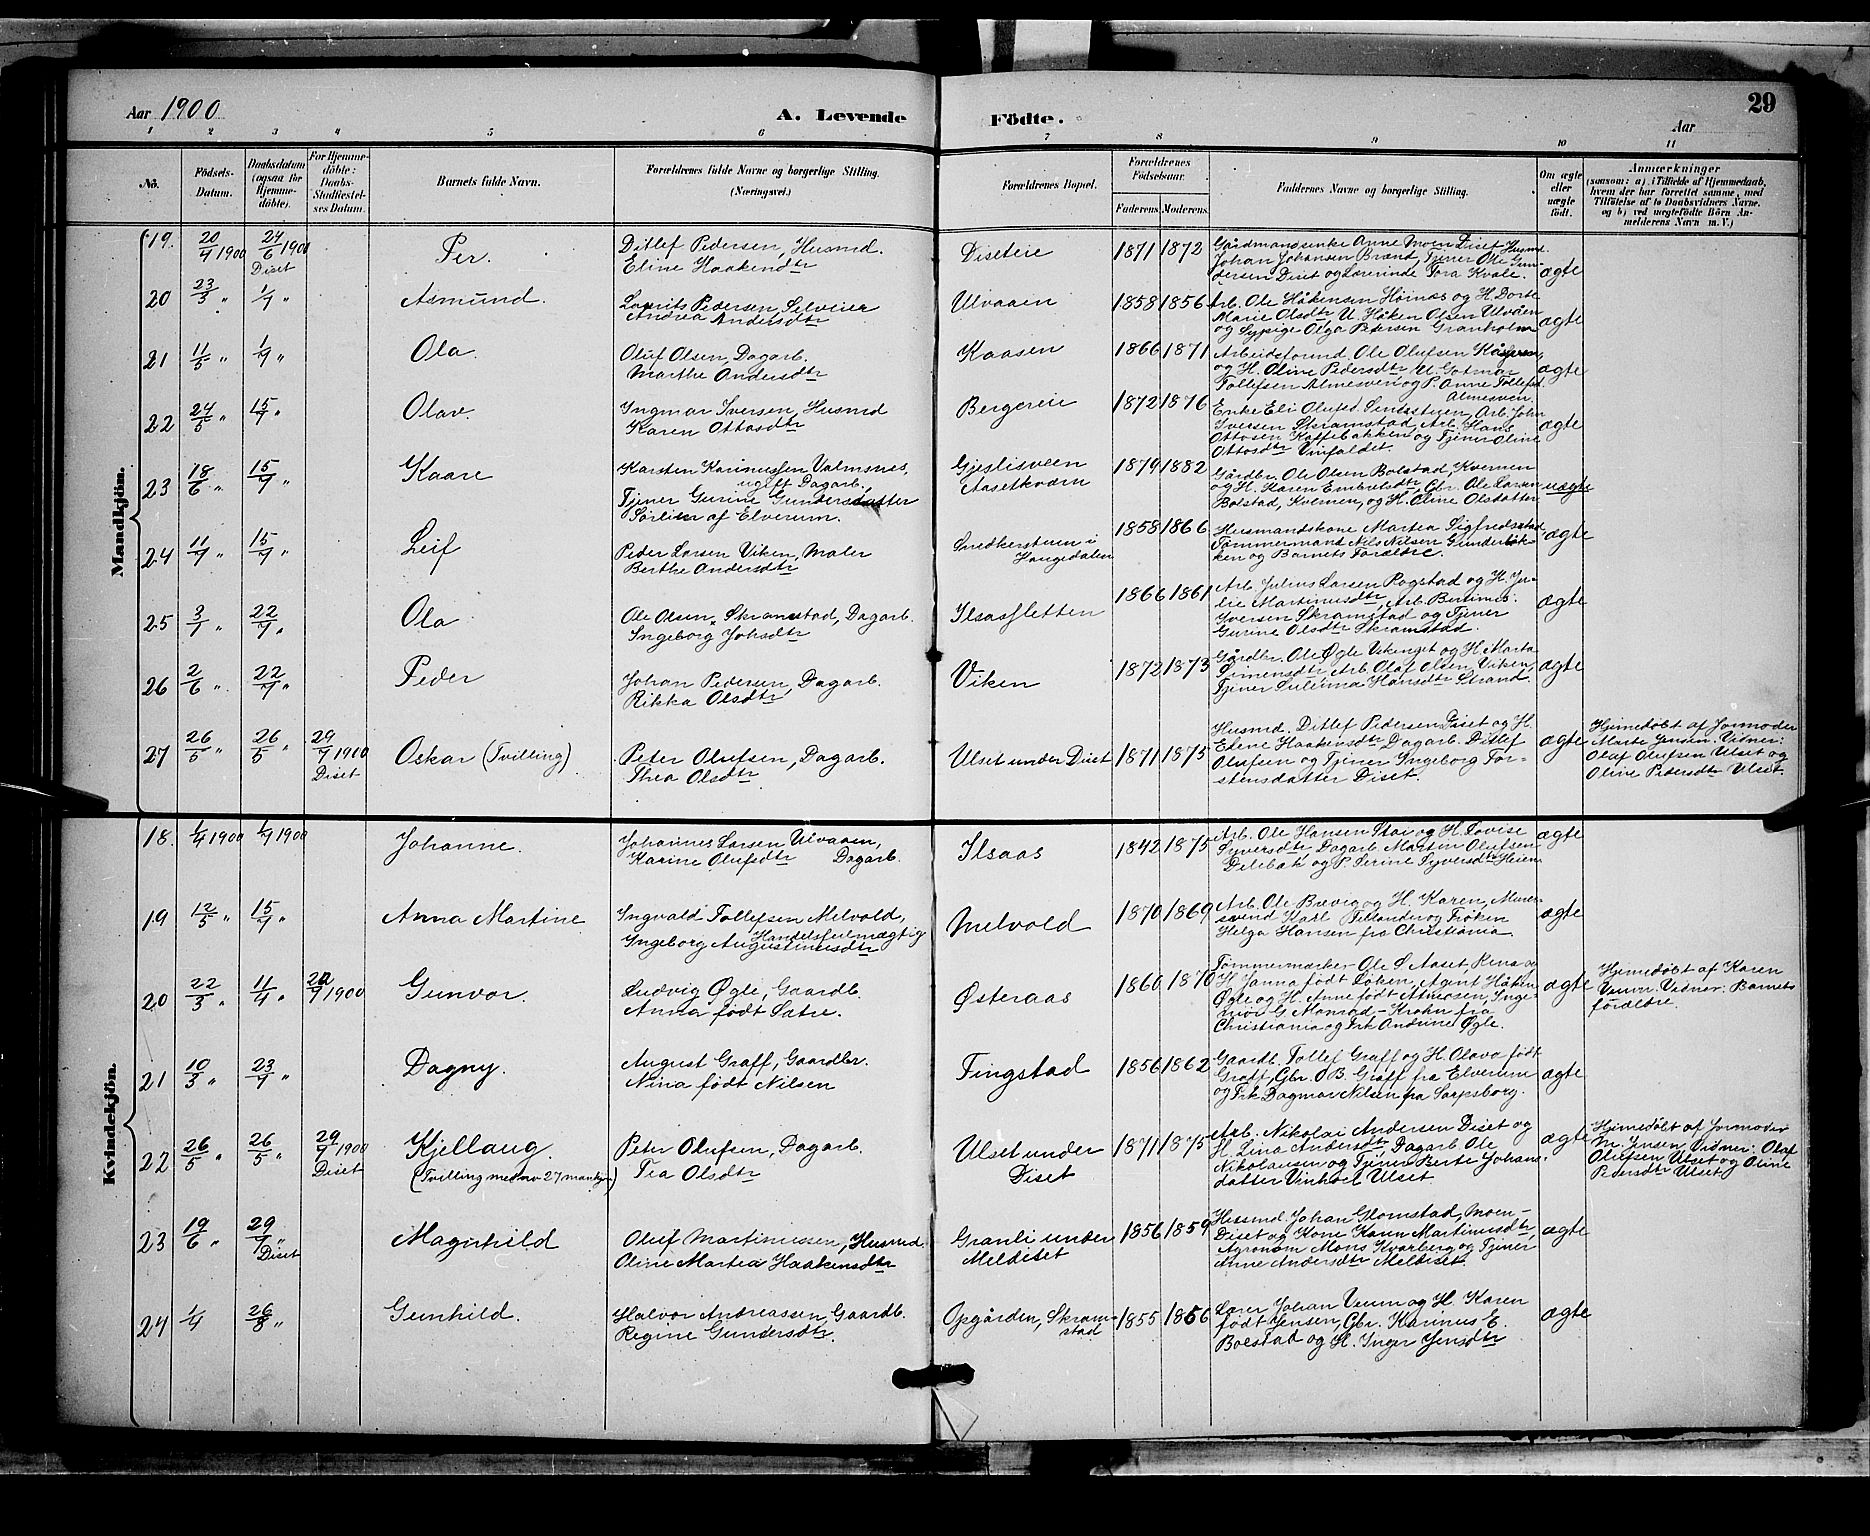 Aar 1900
A. Levende
Födte.
29
Aar
1 2 3 4 5 6 7 8 9 10 11
No.
Födsels-Datum.
Daabsdatum (ogsaa for Hjemmedöbte).
For Hjemmedöbte: Daabs-Stadfæstelses Datum.
Barnets fulde Navn.
Forældrenes fulde Navne og borgerlige Stilling.
(Næringsvei.)
Forældrenes Bopæl.
Forældrenes Födselsaar.
Faderens. Moderens.
Faddernes Navne og borgerlige Stilling.
Om ægte eller uægte födt.
Anmærkninger
(saasom: a) i Tilfælde af Hjemmedaab, hvem der har forrettet samme, med Tilföielse af to Daabsvidners Navne, og b) ved uægtefödte Börn Anmelderens Navn m. V.)
Mandkjön.
19. 20/4 1900 24/6 1900 Diset
Per.
Ditlef Pedersen, Husmd.
Eline Haakendtr
Diseteie
1871 1872
Gårdmandsenke Anne Moen Diset Husmd.
Johan Johansen Brænd, Tjener Ole Gun-
dersen Diset og Lærerinde Tora Kvale.
ægte
20 23/3 " 1/7 "
Asmund.
Laurits Pedersen, Selveier
Andrea Andersdtr
Ulvaaen
1858 1856
Arb. Ole Håkensen Höinæs og H. Dorte
Marie Olsdtr U. Håken Olsen Ulvåen
og Sypige Olga Pedersen Granholm
ægte
21 11/5 " 1/7 "
Ola
Oluf Olsen, Dagarb.
Marthe Andersdtr
Kaasen
1866 1871
Arbeidsformd. Ole Olufsen Kåsen
og H. Oline Pedersdtr U. Gotmar
Tollefsen Almesveen og P. Anne Tollefsd.
Almesveen.
ægte
22 24/5 " 15/7 "
Olav.
Ingmar Iversen, Husmd
Karen Ottosdtr
Bergereie
1872 1876
Enke Eli Olufsd. Sendstuen, Arb. John
Iversen Skramstad, Arb. Hans
Ottosen Kaffebakken og Tjener Oline
Ottosdtr Vinfaldet.
ægte
23 18/6 " 15/7 "
Kaare
Karsten Karinussen Valmsnes,
ugift Dagarb.
Tjener Gurine Gundersdatter
Sörlien af Elverum.
Gjeslisveen
Aasetkværn
1879 1882
Gårdbr. Ole Olsen Bolstad, Kvernen
og H. Karen Embretsdtr, Gbr. Ole Larsen
Bolstad, Kvernen, og H. Oline Olsdatter
uægte
24 11/7 " 15/7 "
Leif
Peder Larsen Viken, Maler
Berthe Andersdtr
Snedkerstuen i
Haugedalen
1858 1866
Husmandskone Martea Sigfredsstad
Tömmermand Nils Nilsen Gunderbak-
ken og Barnets Forældre.
ægte
25 3/7 " 22/7 "
Ola
Ole Olsen, Skramstad, Dagarb.
Ingeborg Johsdtr
Ilsaasfletten
1866 1861
Arb. Julius Larsen Rogstad og H. Ju-
lie Martinusdtr, Arb. Bernines
Iversen Skramstad og Tjener
Gurine Olsdtr Skramstad.
ægte
26 2/6 " 22/7 "
Peder
Johan Pedersen, Dagarb.
Rikka Olsdtr
Viken
1872 1873
Gårdbr. Ole Øgle Vikenget og H. Marta
Simensdtr, Arb. Olaf Olsen Viken,
Tjener Sulima Hansdtr Strand.
ægte
27 26/5 " 26/5 " 29/7 1900 Diset
Oskar (Tvilling)
Peter Olufsen, Dagarb.
Thea Olsdtr
Ulset under Diset
1871 1875
Husmd. Ditlef Pedersen Diset og H.
Eline Haakensdtr Dagarb. Ditlef
Olufsen og Tjener Ingeborg Tor-
stensdatter Diset.
ægte
Hjemedöbt af Jormoder
Marte Jensen. Vidner:
Olaf Olufsen Ulset og
Oline Pedersdtr Ulset.
Kvindekjön.
18. 1/4 1900 1/7 1900
Johanne.
Johannes Larsen Ulvaaen,
Karine Olufsdtr Dagarb.
Ilsaas
1842 1875
Arb. Ole Hansen Stai og H. Lovise
Syversdtr, Dagarb. Martin Olufsen
Delebæk og P. Serine Syversdtr Heien
ægte
19 12/5 " 15/7 "
Anna Martine
Ingvald Tollefsen Melvold,
Handelsfulmægtig
Ingeborg Augustinusdtr
Melvold
1870 1869
Arb. Ole Brevig og H. Karen, Murer-
svend Karl Fillander og Fröken
Helga Hansen fra Christiania
ægte
20 22/3 " 11/4 " 22/7 1900
Gunvor.
Ludvig Øgle, Gaardb.
Anna födt Sætre.
Østeraas
1860 1870
Tömmermærker Ole S. Aaset, Rena og
H. Janna födt Löken, Agent Håken
Øgle og H. Anne födt Atneosen, Inge-
niör G. Monrad-Krohn fra
Christiania og Frk Andrine Øgle.
ægte
Hjemedöbt af Karen
Veum. Vidner: Barnets
forældre.
21 10/3 " 23/7 "
Dagny.
August Graff, Gaardbr.
Nina födt Nilsen
Tingstad
1856 1862
Gaardb. Tollef Graff og H. Olava födt
Graff, Gbr. O B. Graff fra Elverum
og Frk Dagmar Nilsen fra Sarpsborg.
ægte
22 26/5 " 26/5 " 29/7 1900 Diset
Kjellaug.
(Tvilling med no 27 mankjn)
Peter Olufsen, Dagarb.
Tea Olsdtr
Ulset under
Diset
1871 1875
Arb. Nikolai Andersen Diset og
H. Lina Andersdtr Dagarb Ole
Nikolausen og Tjener Berte Johans-
datter Vinhoel Ulset.
ægte
Hjemedöbt af Jormoder
M. Jensen. Vidner: Olaf
Olufsen Ulset og Oline
Pedersdtr Ulset.
23 19/6 " 29/7 " Diset
Magnhild
Oluf Martinussen, Husmd.
Oline Martea Haakensdtr
Granli under
Meldiset
1856 1859
Husmd. Johan Glomstad, Moen-
Diset og Kone Karen Martinusdtr,
Agronom Mons Kvarberg og Tjener
Anne Andersdtr Meldiset.
ægte
24 1/4 26/8 "
Gunhild.
Halvor Andreassen, Gaardb.
Regine Gundersdtr.
Opgården, Skram-
stad
1855 1856
Lærer Johan Veum og H. Karen
födt Jensen, Gbr. Karinus E.
Bolstad og H. Inger Jensdtr
ægte